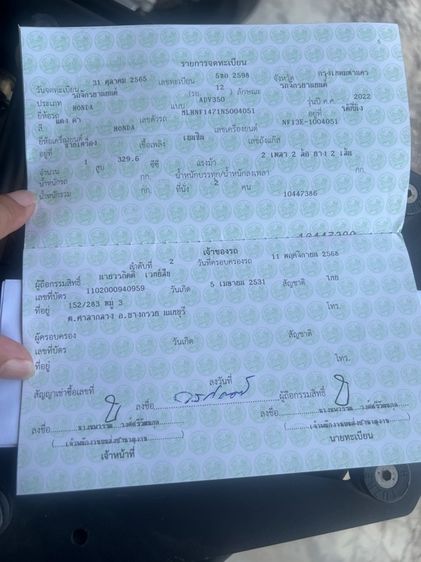 รายการจดทะเบียน
วันจดทะเบียน 31 ตุลาคม 2565 เลขทะเบียน 5ขถ 2598 จังหวัด กรุงเทพมหานคร
ประเภท รถจักรยานยนต์ (รย. 12 ลักษณะ รถจักรยานยนต์
ยี่ห้อรถ HONDA แบบ ADV350 รุ่นปี ค.ศ. 2022
สี แดง ดำ เลขตัวรถ MLHNF1471N5004051 อยู่ที่
ยี่ห้อเครื่องยนต์ HONDA เลขเครื่องยนต์ NF13E-1004051
อยู่ที่ เชื้อเพลิง เบนซิน เลขถังแก๊ส
จำนวน 1 สูบ 329.6 ซีซี แรงม้า 2 เพลา 2 ล้อ ยาง 2 เส้น
น้ำหนักรถ กก. น้ำหนักบรรทุก/น้ำหนักลงเพลา
น้ำหนักรวม กก. ที่นั่ง 2 คน 10447386
เจ้าของรถ
ลำดับที่ 2 วันที่ครอบครองรถ 11 พฤศจิกายน 2568
ผู้ถือกรรมสิทธิ์
เลขที่บัตร 1102000940959 วันเกิด 5 เมษายน 2531 สัญชาติ ไทย
ที่อยู่ 152/283 หมู่ 3 โทร.
ต.ศาลากลาง อ.บางกรวย นนทบุรี
ผู้ครอบครอง
เลขที่บัตร วันเกิด สัญชาติ
ที่อยู่ โทร.
สัญญาเช่าซื้อเลขที่ ลงวันที่
ลงชื่อ ผู้ถือกรรมสิทธิ์
ลงชื่อ ลงชื่อ
เจ้าหน้าที่ นายทะเบียน